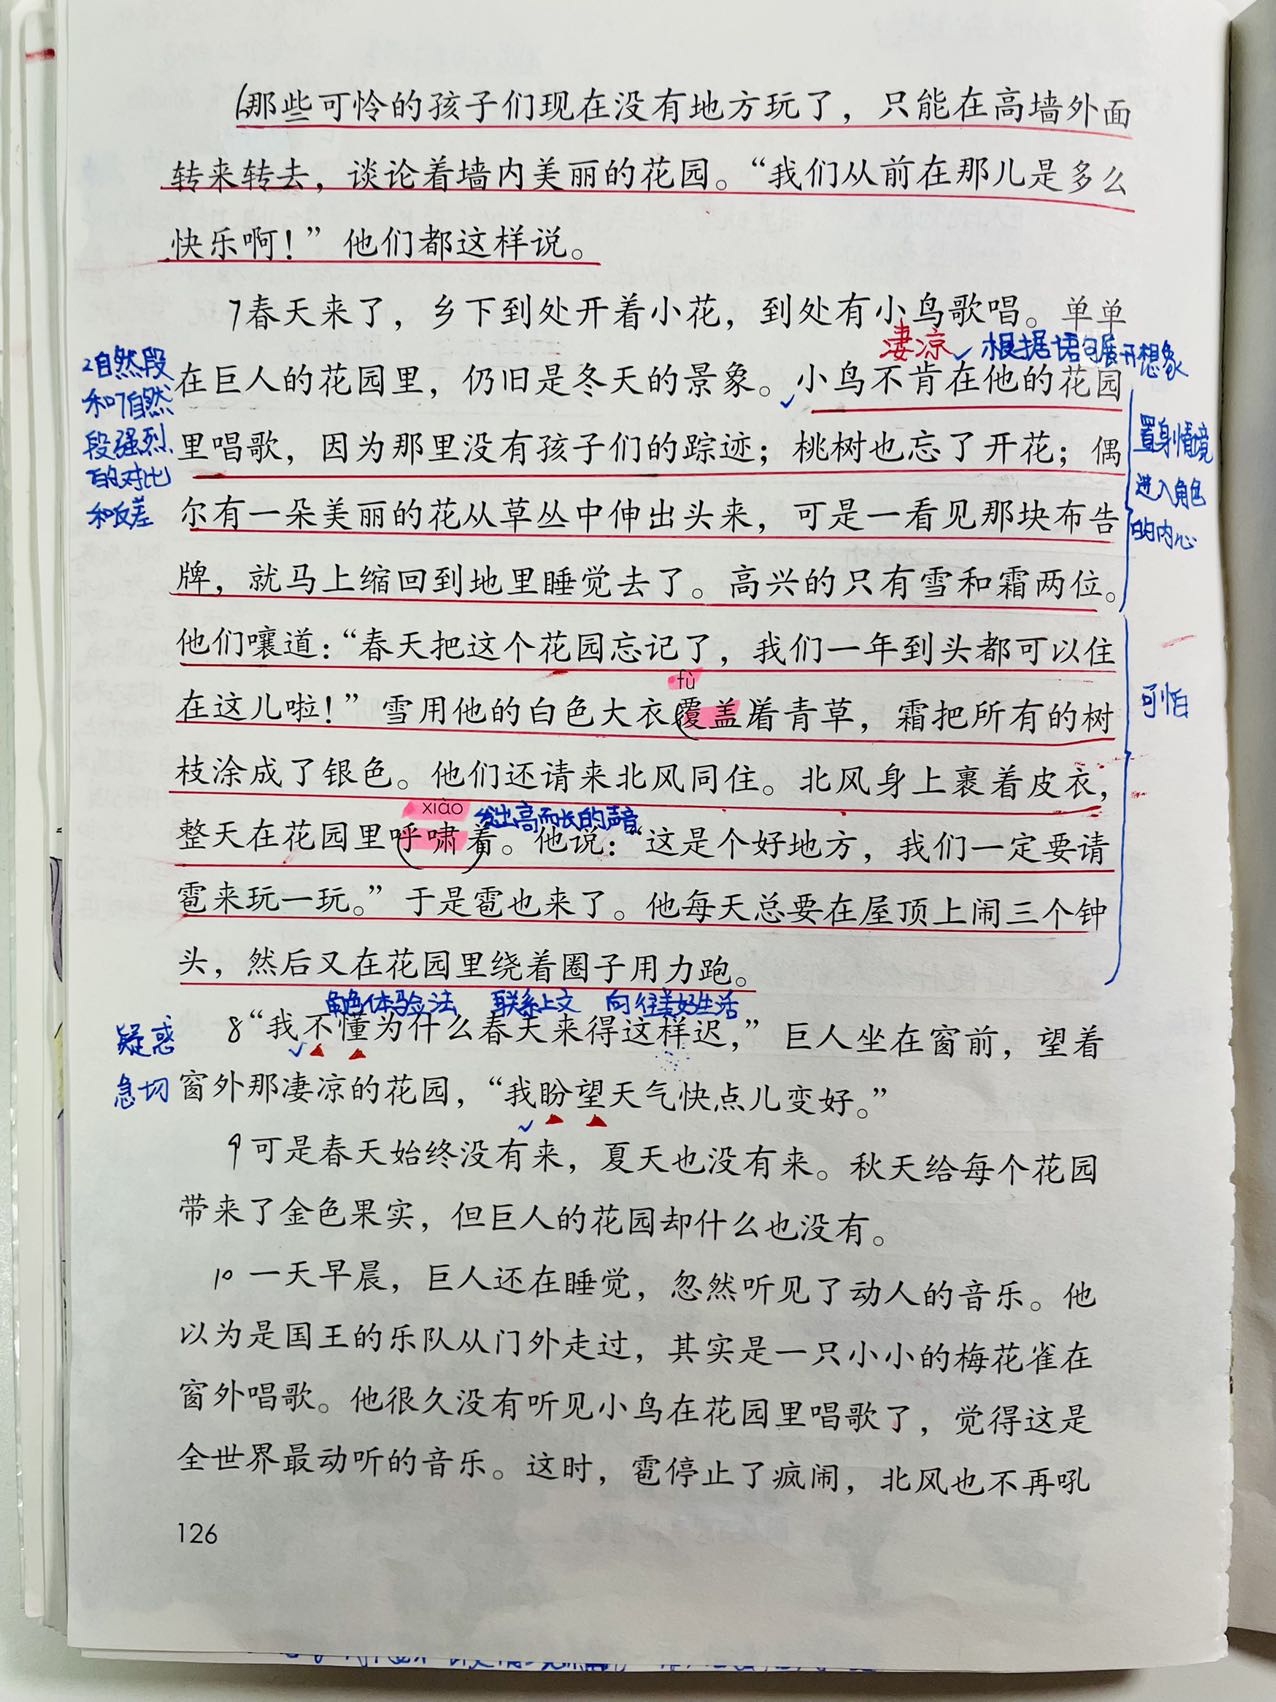 6那些可怜的孩子们现在没有地方玩了，只能在高墙外面
转来转去，谈论着墙内美丽的花园。“我们从前在那儿是多么
快乐啊！”他们都这样说。
7春天来了，乡下到处开着小花，到处有小鸟歌唱。单单
凄凉 根据语句展开想象
在巨人的花园里，仍旧是冬天的景象。小鸟不肯在他的花园
里唱歌，因为那里没有孩子们的踪迹；桃树也忘了开花；偶
尔有一朵美丽的花从草丛中伸出头来，可是一看见那块布告
牌，就马上缩回到地里睡觉去了。高兴的只有雪和霜两位。
2自然段
和7自然
段强烈
的对比
和反差
置身情境
进入角色
的内心
他们嚷道：“春天把这个花园忘记了，我们一年到头都可以住
fù
在这儿啦！”雪用他的白色大衣覆盖着青草，霜把所有的树
可怕
枝涂成了银色。他们还请来北风同住。北风身上裹着皮衣，
xiào 发出高而长的声音
整天在花园里呼啸着。他说：“这是个好地方，我们一定要请
雹来玩一玩。”于是雹也来了。他每天总要在屋顶上闹三个钟
头，然后又在花园里绕着圈子用力跑。
角色体验法 联系上文 向往美好生活
8“我不懂为什么春天来得这样迟，”巨人坐在窗前，望着
疑惑
急切
窗外那凄凉的花园，“我盼望天气快点儿变好。”
9可是春天始终没有来，夏天也没有来。秋天给每个花园
带来了金色果实，但巨人的花园却什么也没有。
10一天早晨，巨人还在睡觉，忽然听见了动人的音乐。他
以为是国王的乐队从门外走过，其实是一只小小的梅花雀在
窗外唱歌。他很久没有听见小鸟在花园里唱歌了，觉得这是
全世界最动听的音乐。这时，雹停止了疯闹，北风也不再吼
126